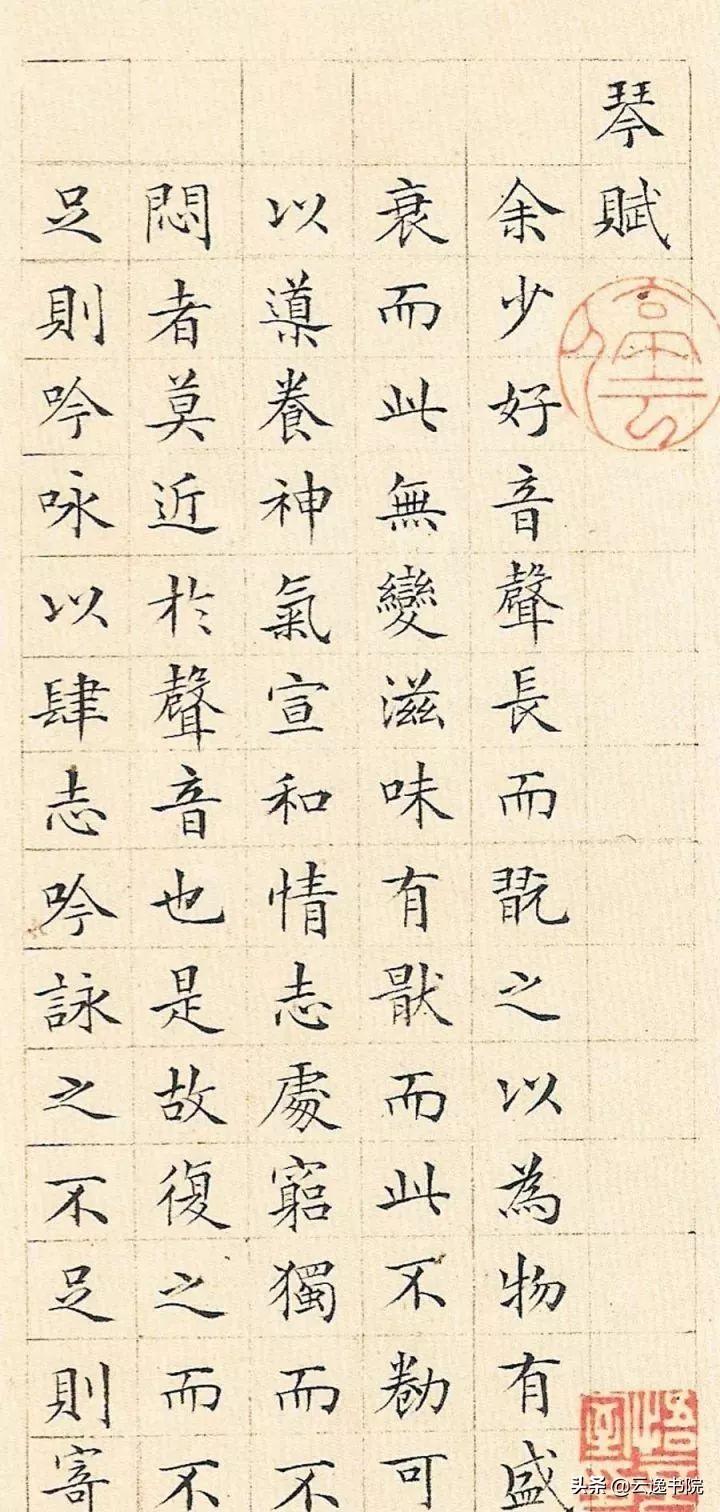 琴賦
余少好音聲長而翫之以為物有盛
衰而此無變滋味有猒而此不勌可
以導養神氣宣和情志處窮獨而不
悶者莫近於聲音也是故復之而不
足則吟咏以肆志吟詠之不足則寄
头条 @云逸书院